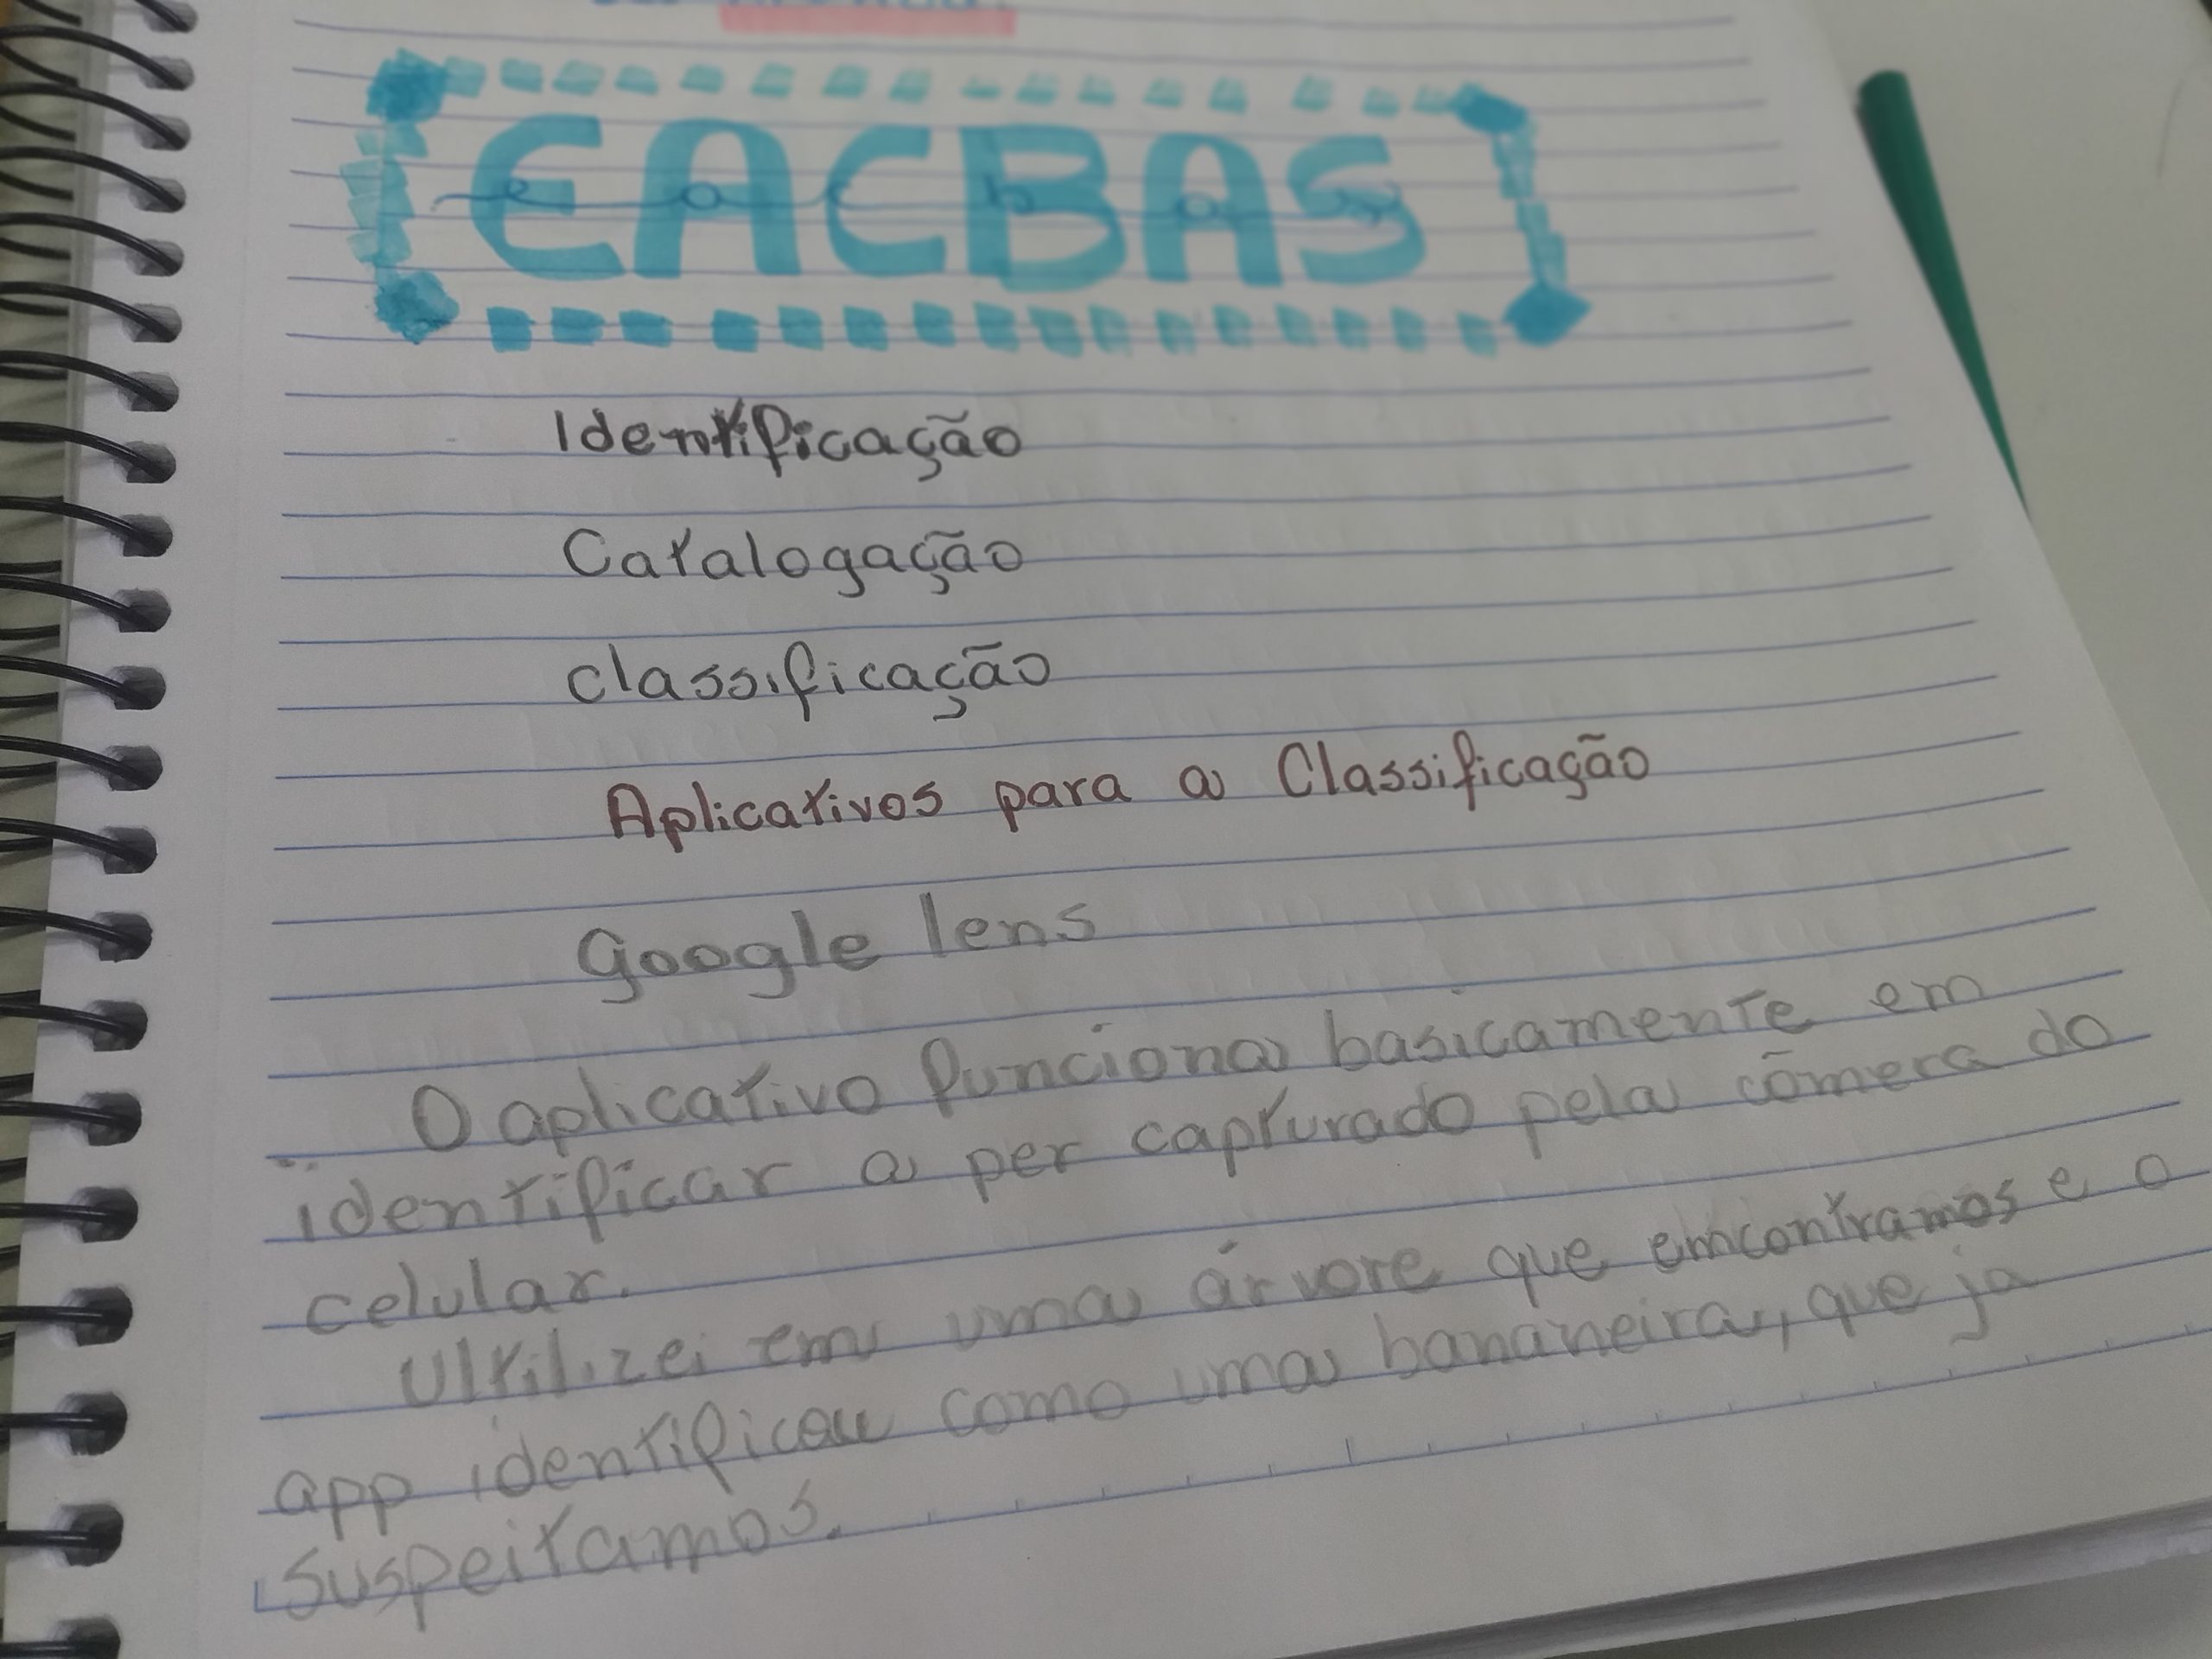 EACBAS
eacbas
Identificação
Catalogação
classificação
Aplicativos para a Classificação
Google lens
O aplicativo funciona basicamente em
identificar a per capturado pela câmera do
celular.
Ultilizei em uma árvore que emcontramos e o
app identificou como uma bananeira, que ja
suspeitamos.